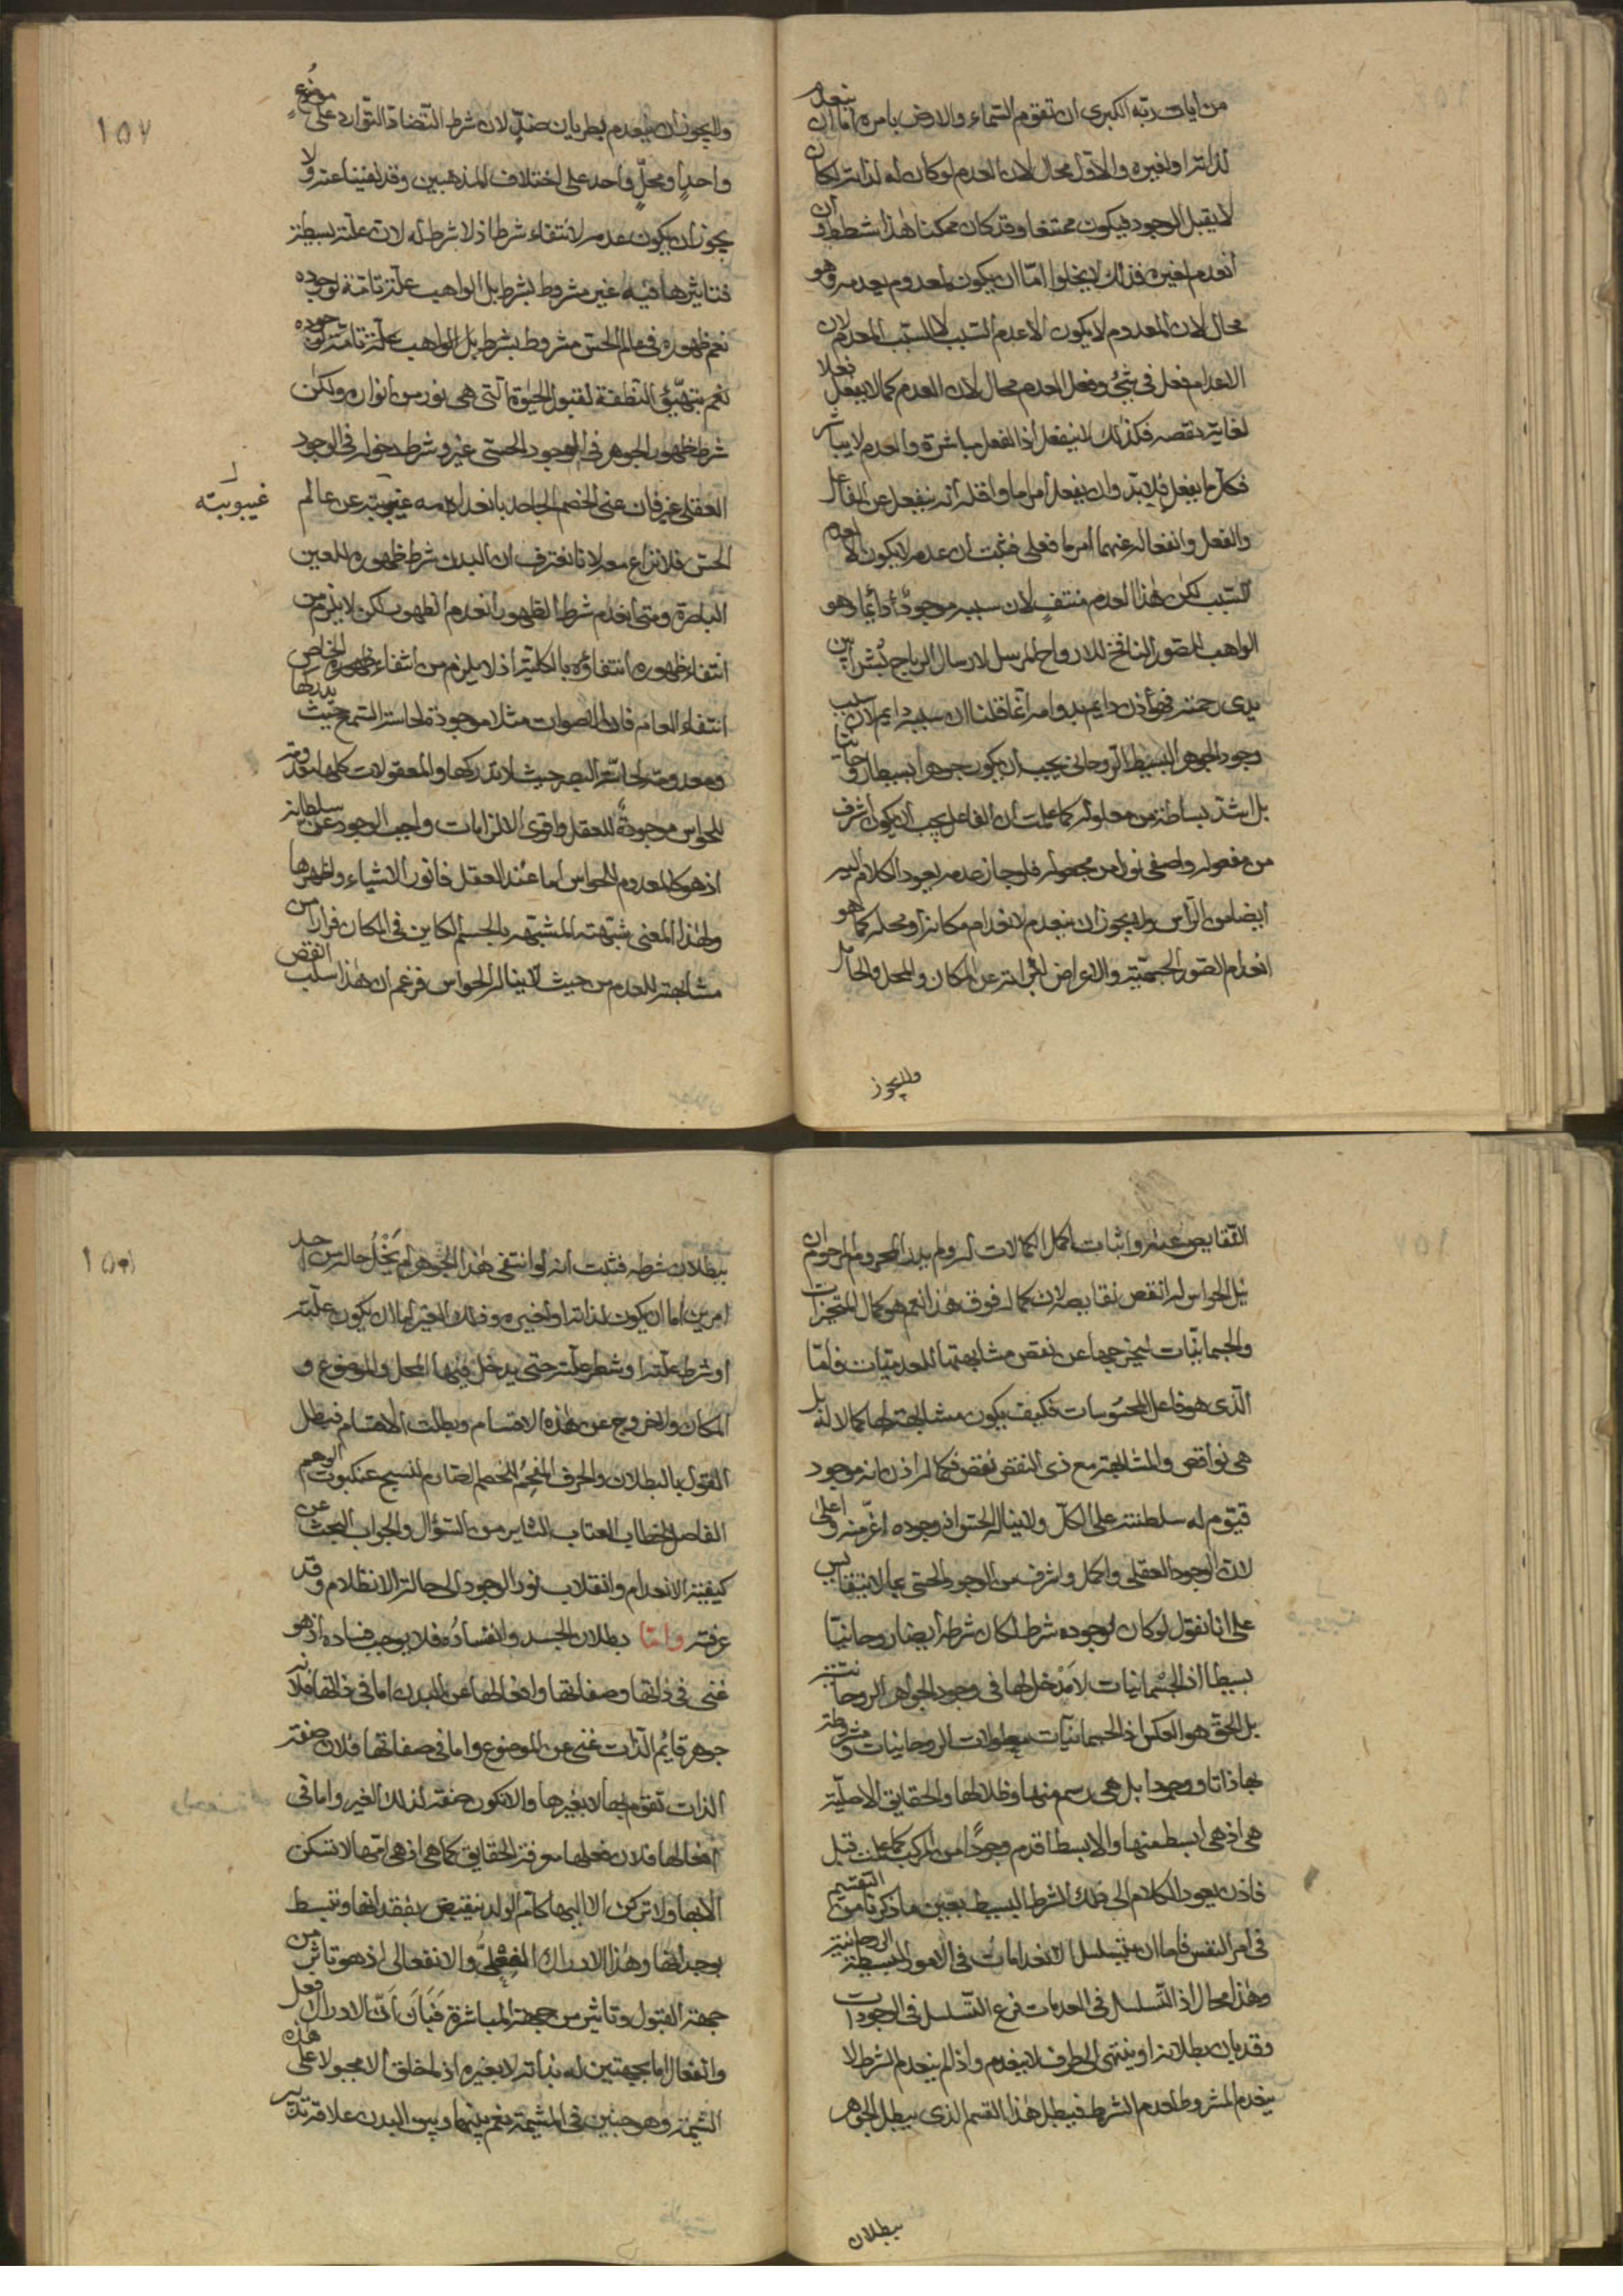 من ايات ربه الكبرى ان تقوم السماء والارض بامره اما ان ينعدم
لذاته او لغيره والاول محال لان العدم لو كان له لذاته لكان
لا يقبل الوجود فيكون ممتنعا وقد كان ممكنا هذا شطط وان
انعدم لغيره فذلك لا يخلوا امّا ان يكون لمعدوم يعدمه وهو
محال لان المعدوم لا يكون الا عدم السبب لا السبب المعدم لان
الاعدام فعل في شئ وفعل العدم محال لان العدم كما لا يفعل فعلا
لغاية نقصه فكذلك لا ينفعل اذ الفعل مباشرة والعدم لا يباشر
فكل ما يفعل فلابد وان يفعل امرا ما واقله انه ينفعل عن الفاعل
والفعل وانفعاله عنهما امر ما فعلى فثبت ان عدمه لا يكون الا لعدم
السبب لكن هذا العدم منتفٍ لان سببه موجود أدائما وهو
الواهب المصور النافخ للارواح المرسل لارسال الرياح بُشرا بين
يدى رحمته فهو أذن دايم بدوامه انما قلنا ان سببه دايم لان سبب
وجود الجوهر البسيط الروحانى يجب ان يكون جوهرا بسيطا روحانيا
بل اشد بساطة من معلوله كما علمت ان الفاعل يجب ان يكون اشرف
من مفعوله واصفى نورا من مجعوله فلو جاز عدمه يعود الكلام اليه
ايضا من الراس ولا يجوز ان ينعدم لانعدام مكانه او محله كما هو
انعدام الصور الجسمية والاعراض لبراءته عن المكان والمحل والحامل
ولا يجوز
١٥٧
ولا يجوز ان ينعدم بطريان ضدٍّ لان شرط التضاد التوارد على موضوعٍ
واحدٍ او محلٍّ واحد على اختلاف المذهبين وقد نفينا عنه ولا
يجوز ان يكون عدمه لانتفاء شرط اذ لا شرط له لان علته بسيطة
فتاثيرها فيه غير مشروط بشرط بل الواهب علة تامة لوجوده
نعم ظهوره في عالم الحس مشروط بشرط بل الواهب علة تامة لوجوده
نعم بتهيّؤ النطفة لقبول الحيوة التى هى نور من انواره ولكن
شرط ظهور الجوهر في الوجود الحسى غير وشرط دخوله في الوجود
العقلى غير فان عنى الخصم الجاحد بانعدامه غيبته عن عالم
غيبوبيته
الحس فلا نزاع معه لانا نعترف ان البدن شرط ظهوره للعين
الباصرة ومتى انعدم شرط الظهور انعدم الظهور لكن لا يلزم من
انتفاء ظهوره انتفاؤه بالكلية اذ لا يلزم من انتفاء ظهوره الخاص
انتفاء العام فان الاصوات مثلا موجودة لحاسة السمع حيث يدركها
ومعدومة لحاسة البصر حيث لا تدركها والمعقولات كلها معدومة
للحواس موجودةٌ للعقل واقوى الالزامات واجب الوجود عز سلطانه
اذ هو كالمعدوم للحواس اما عند العقل فانور الاشياء واظهرها
ولهذا المعنى شبّهته المشبّهه بالجسم الكاين في المكان فرارا من
مشابهته للعدم من حيث لا ينال الحواس فزعم ان هذا سلب النقص
النقايص عنه واثبات اكمل الكمالات له ولم يدر المحروم المرحوم ان
نيل الحواس له انقص نقايصه لان كماله فوق هذا نعم هو كمال المتحيزات
والجسمانيّات ليخرجها عن نقص مشابهتها للعدميّات فامّا
الّذى هو فاعل المحسوسات فكيف يكون مشابهته لها كمالا له بل
هى نواقص والمشابهة مع ذى النقص نقص فكماله اذن انه موجود
قيّوم له سلطنة على الكلّ ولا يناله الحس اذ وجوده اعزّ منه واعلى
لان الوجود العقلى واكمل واشرف من الوجود الحسى بما لا يتقايس
على انا نقول لو كان لوجوده شرط لكان شرطه أيضا روحانيّا
بسيطا اذ الجسْمانيات لا مَدْخل لها في وجود الجواهر الروحانية
بل الحق هو العكس اذ الجسمانيّات معلولات الروحانيات ومشروطة
بها ذاتا ووجودا بل هى رسم منها وظلالها والحقايق الاصليّة
هى اذ هى ابسط منها والابسط اقدم وجودًا من المركب كما علمت قبل
فاذن يعود الكلام الى ذلك الشرط البسيط بعين ما ذكرنا من التقسيم
في امر النفس فاما ان يتسلسل الانعدامات في الامور البسيطة الروحانية
وهذا محال اذ التّسلسل في العدمات فرع التّسلسل في الوجودات
وقد بان بطلانه او ينتهى الى طرف لا ينعدم واذا لم ينعدم الشرط لا
ينعدم المشروط لعدم الشرط فبطل هذا القسم الذى يبطل الجوهر
بطلان
١٥٨
ببطلان شرطه فثبت انه لو انتفى هذا الجوهر لم يَخْلُ حاله من احد
امرين اما ان يكون لذاته او لغيره وذلك الغير اما ان يكون علّته
او شرط علّته او شطر علّته حتى يدخل فيها المحل والموضوع و
المكان ولا خروج عن هذه الاقسام وبطلت الاقسام فبطل
القول بالبطلان والحرف المفحم للخصم الهادم لنسيج عنكبوت الوهم
الفاصل لخطاب العتاب الدائر من السؤال والجواب البحث عن
كيفية الانعدام وانقلاب نور الوجود الى حالة الانظلام وقد
عرفته وامّا بطلان الجسد وانفساده فلا يوجب فساده اذ هو
غنى في ذاتها وصفاتها وافعالها عن البدن اما في ذاتها فلانه
جوهر قايُم الذات غنى عن الموضوع واما في صفاتها فلان صفة
الذات تقوم بها لا بغيرها والا تكون صفة لذلك الغير واما في
افعالها فلان فعلها معرفة الحقايق كما هى اذ هى امّها لا تسكن
الا بها ولا تركن الا اليها كامّ الولد ينقبض بفقدانها وينبسط
بوجدانها وهذا الادراك الفعلىّ والانفعالى اذ هو تاثر من
جهة القبول وتاثير من جهة المباشرة فَبَانَ اَنّ الادراك فعل
وانفعال اما بجهتين له بذاته لا بغيره اذ لم خلق الا مجبولا على هذه
الشيمة وهو جنين في المشيمة نعم بينها وبين البدن علاقة تدبير